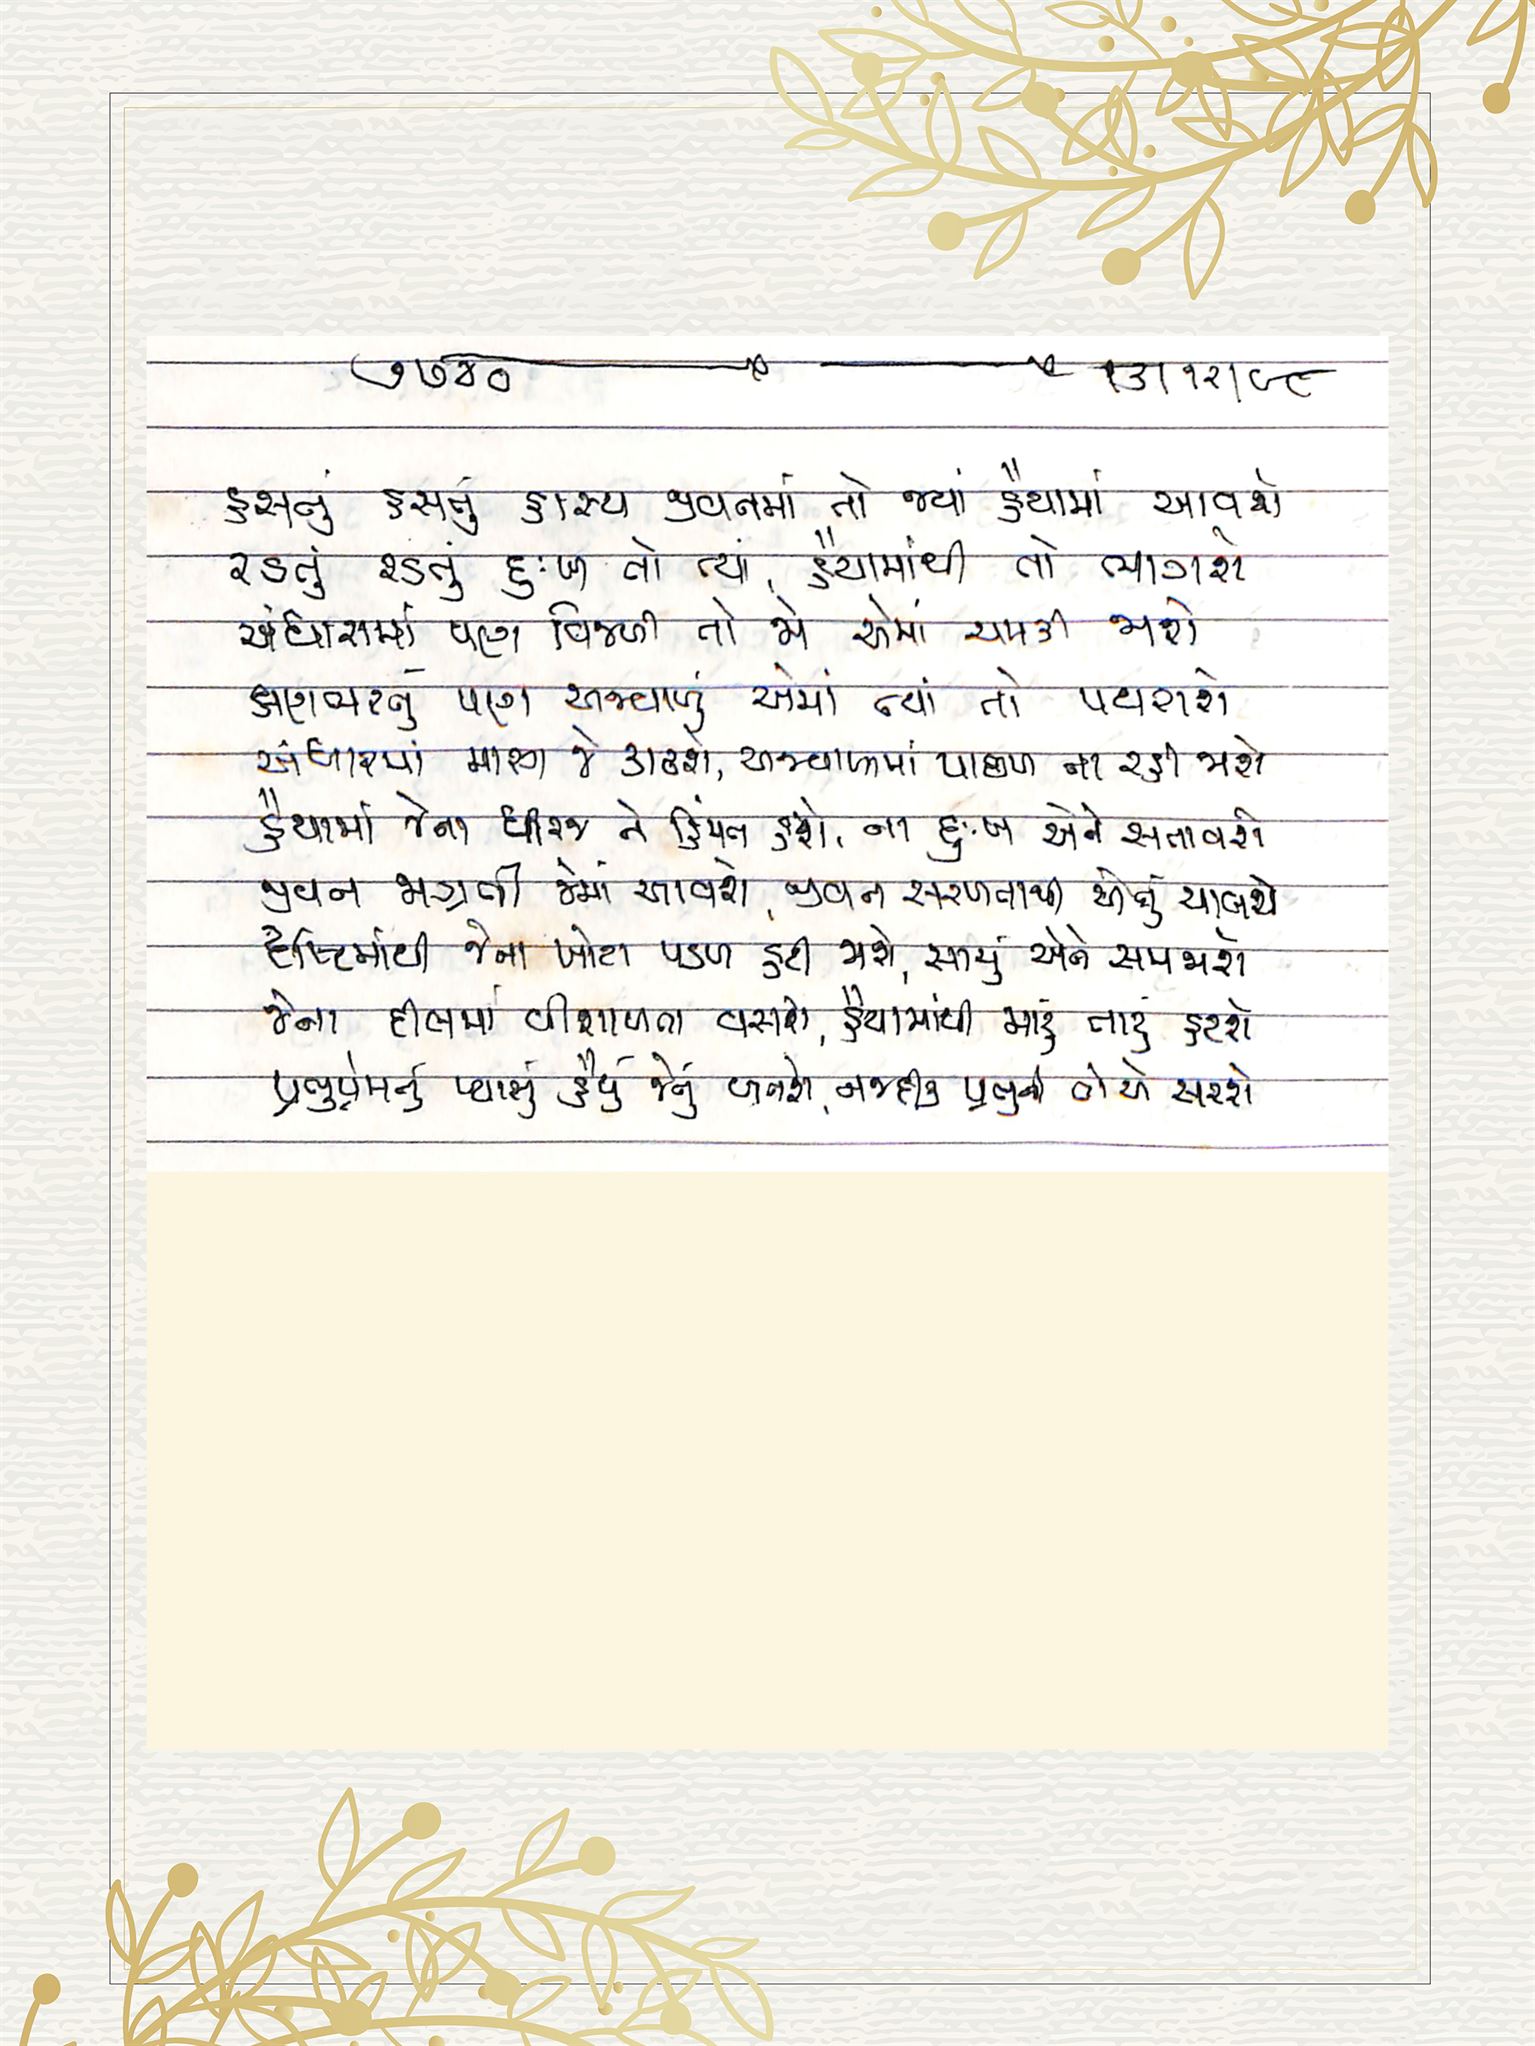 ૭૭૪૦ ૧૩/૧૨/૯૮
હસનું હસનું હાસ્ય જીવનમાં તો જ્યાં હૈયામાં આવશે
રડતું રડતું દુઃખ તો ત્યાં, હૈયામાંથી તો ભાગશે
અંધારામાં પણ વિજળી તો જો એમાં ચમકી જાશે
ક્ષણભરનું પણ અજવાળું એમાં ત્યાં તો પથરાશે
અંધારમાં મારગ જે કાઢશે, અજવાળામાં પાછળ ના રહી જાશે
હૈયામાં જેના ધીરજ ને હિંમત હશે, ના દુઃખ એને સતાવશે
જીવન જાગ્રતી જેમાં આવશે, જીવન સરળતાથી એનું ચાલશે
દૃષ્ટિમાંથી જેના ખોટા પડળ હટી જાશે, સાચું એને સમજાશે
જેના દીલમાં વીશાળતા વસશે, હૈયામાંથી મારું તારું હટશે
પ્રભુપ્રેમનું પ્યાસું હૈયું જેનું બનશે, નજદીક પ્રભુની એ સરશે